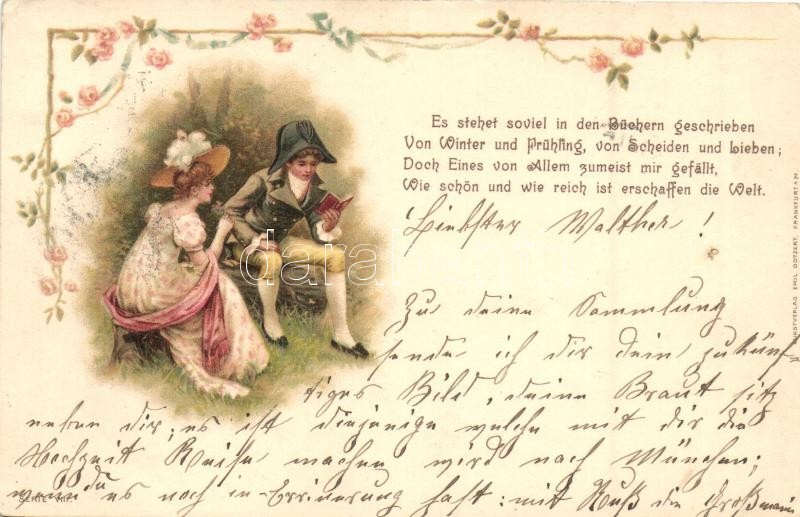 Es stehet soviel in den Büchern geschrieben
Von Winter und Frühling, von Scheiden und Lieben;
Doch Eines von Allem zumeist mir gefällt,
Wie schön und wie reich ist erschaffen die Welt.
Liebster Walther!
Zu deine Sammlung
sende ich dir dein zukünf-
tiges Bild, deine Braut sitz
neben dir, es ist diejenige welche mit dir die
Hochzeit Reise machen wird nach München;
wenn du es noch in Errinerung hast: mit Kuß die Großmama
SERIE
KUNSTVERLAG EMIL DOTZERT, FRANKFURT A/M.
darabanth